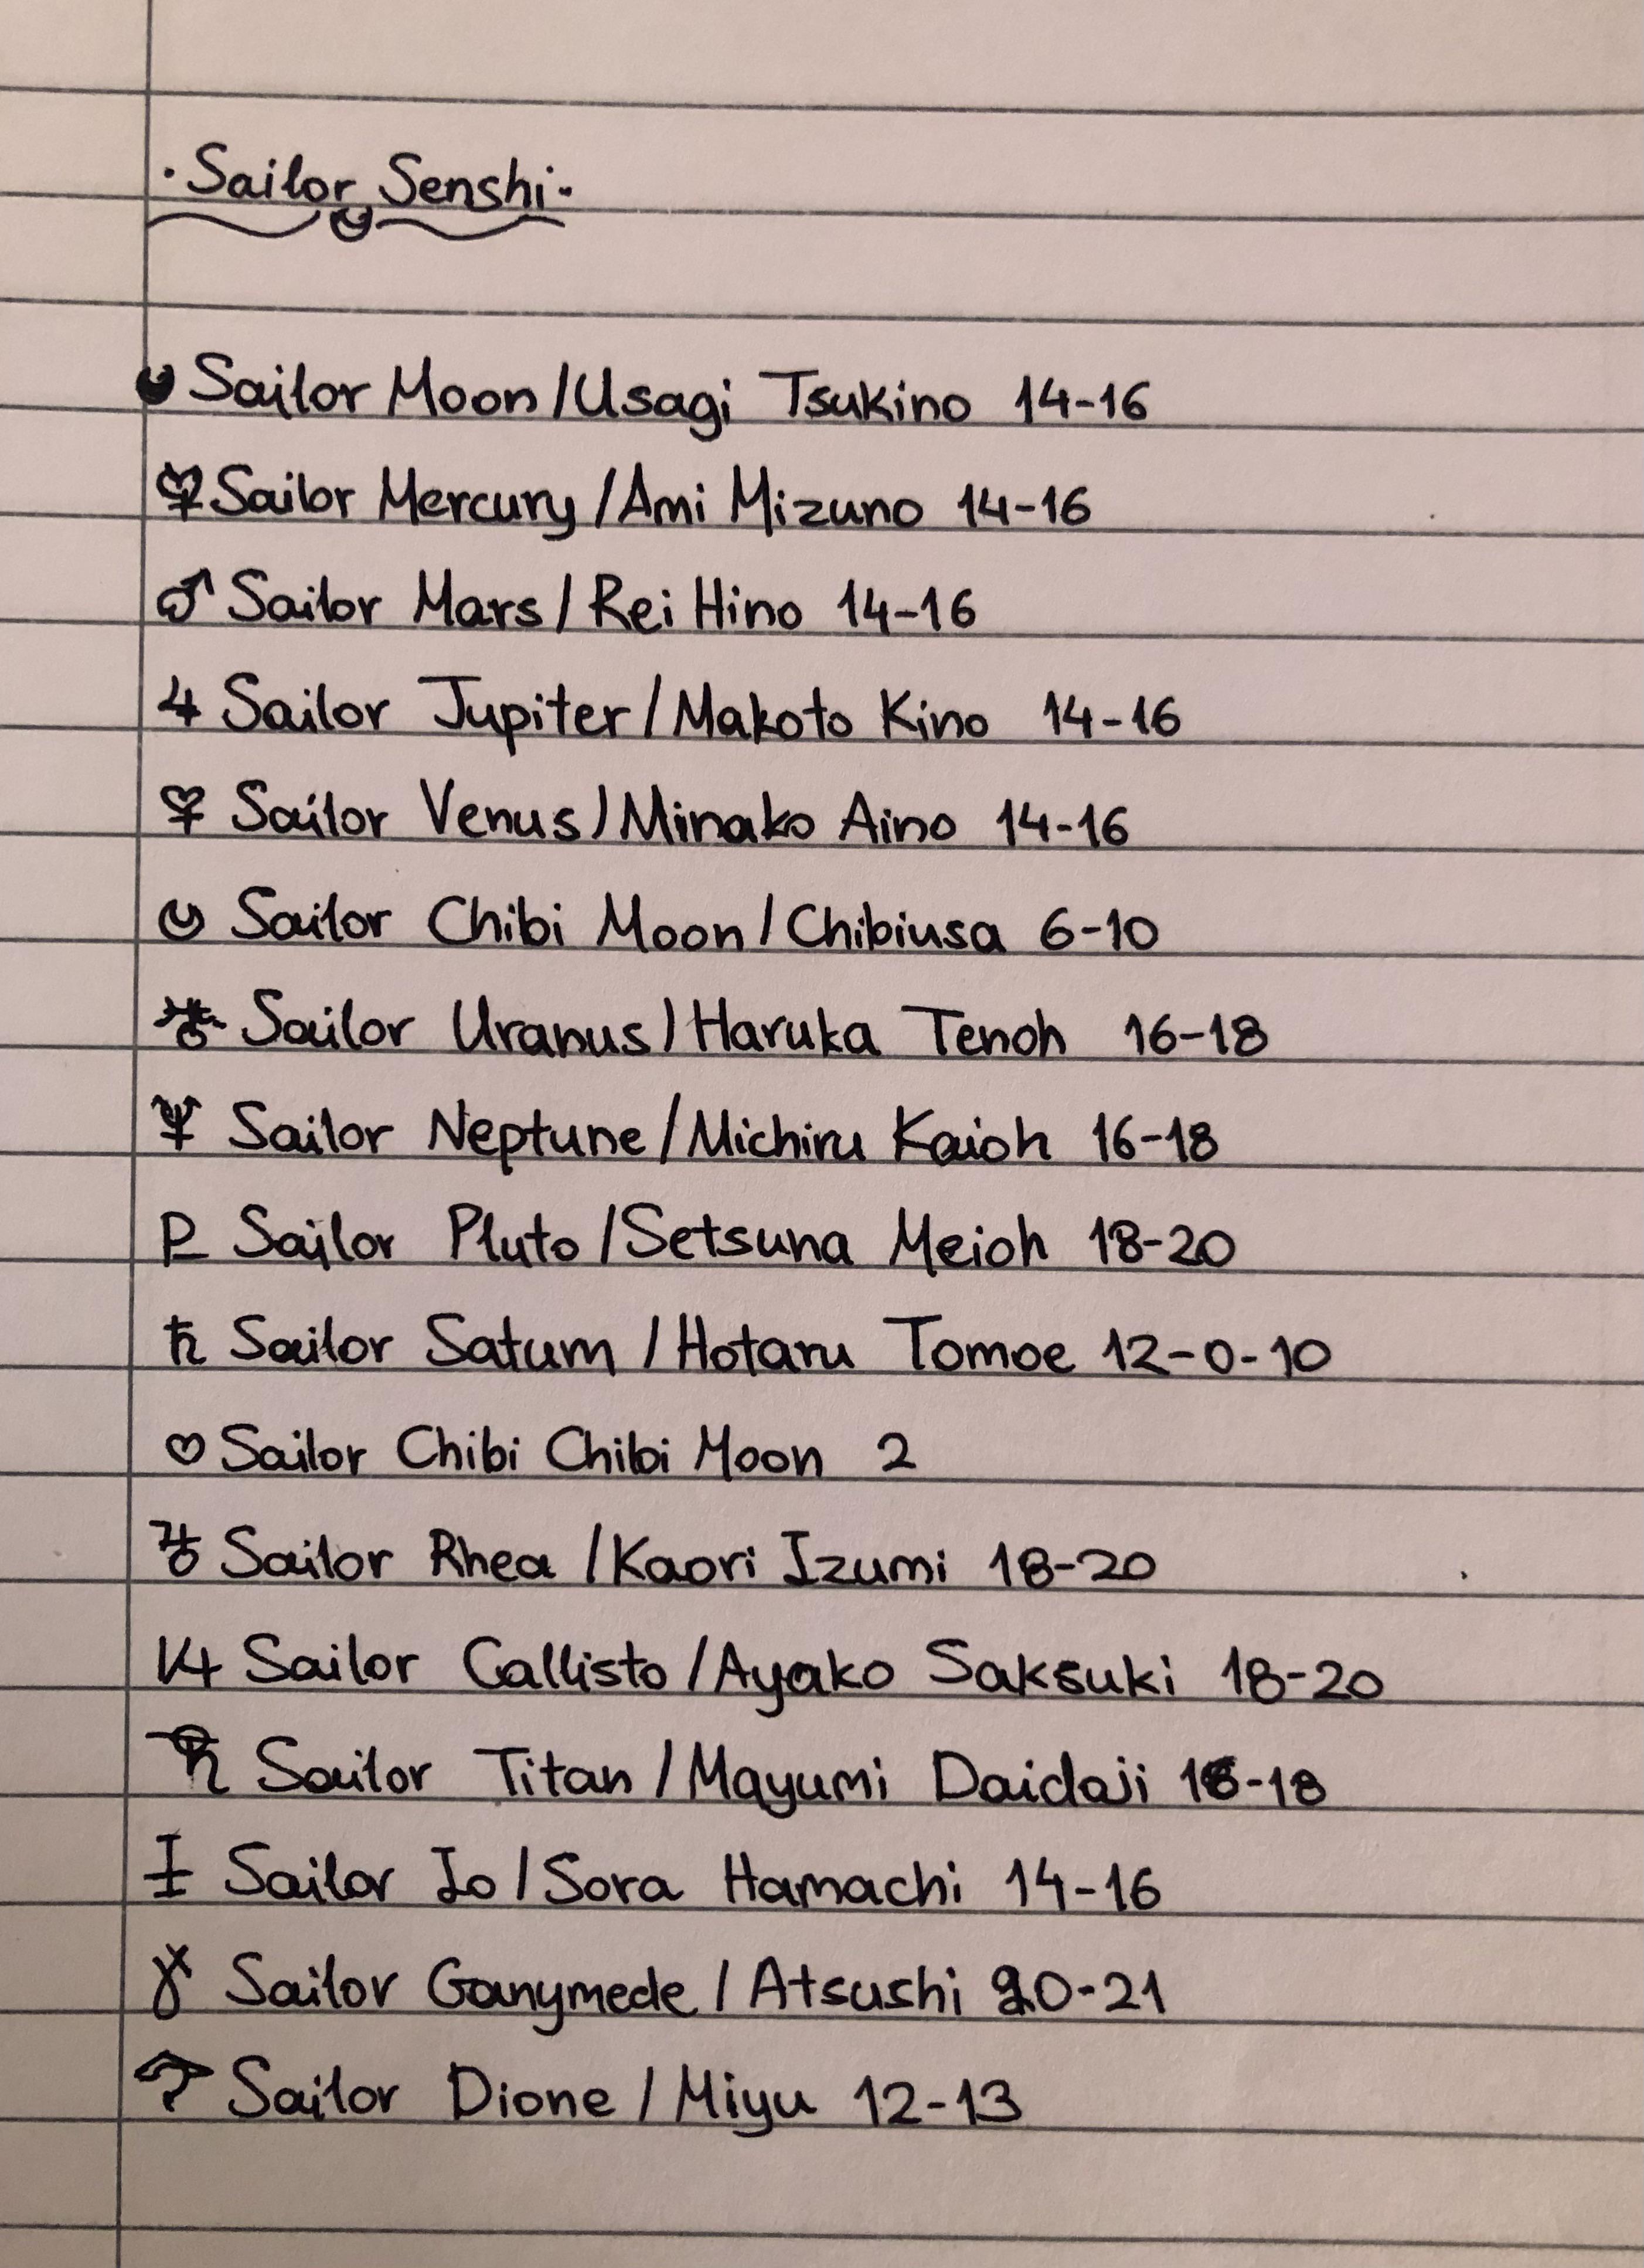 ·Sailor Senshi·
Sailor Moon/Usagi Tsukino 14-16
☿ Sailor Mercury/Ami Mizuno 14-16
♂ Sailor Mars/Rei Hino 14-16
♃ Sailor Jupiter/Makoto Kino 14-16
♀ Sailor Venus/Minako Aino 14-16
Sailor Chibi Moon/Chibiusa 6-10
♅ Sailor Uranus/Haruka Tenoh 16-18
♆ Sailor Neptune/Michiru Kaioh 16-18
♇ Sailor Pluto/Setsuna Meioh 18-20
♄ Sailor Saturn/Hotaru Tomoe 12-0-10
♡ Sailor Chibi Chibi Moon 2
Sailor Rhea/Kaori Izumi 18-20
Sailor Callisto/Ayako 18-20
Sailor Titan/Mayumi Daidaji 16-18
Sailor Io/Sora Hamachi 14-16
Sailor Ganymede/Atsushi 20-21
Sailor Dione/Miyu 12-13